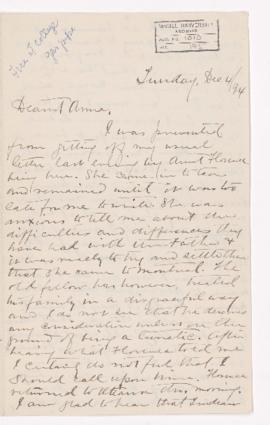 McGILL UNIVERSITY
ARCHIVES
ACC. NO. 1070
REF.
Tuesday, Dec 4/94
Dearest Anne,
I was prevented
from getting off my usual
letter last evening by Aunt Florence
being here. She came in to tea
and remained until it was too
late for me to write. She was
anxious to tell me about the
difficulties and differences they
have had with Father &
it was really to try and settle
that she came to Montreal. The
old fellow has however, treated
his family in a disgraceful way
and I do not see that he deserves
any consideration unless on the
ground of being a lunatic. After
hearing what Florence told me
I certainly do not feel that I
should call upon him. Florence
returned to Ottawa this morning.
I am glad to hear that